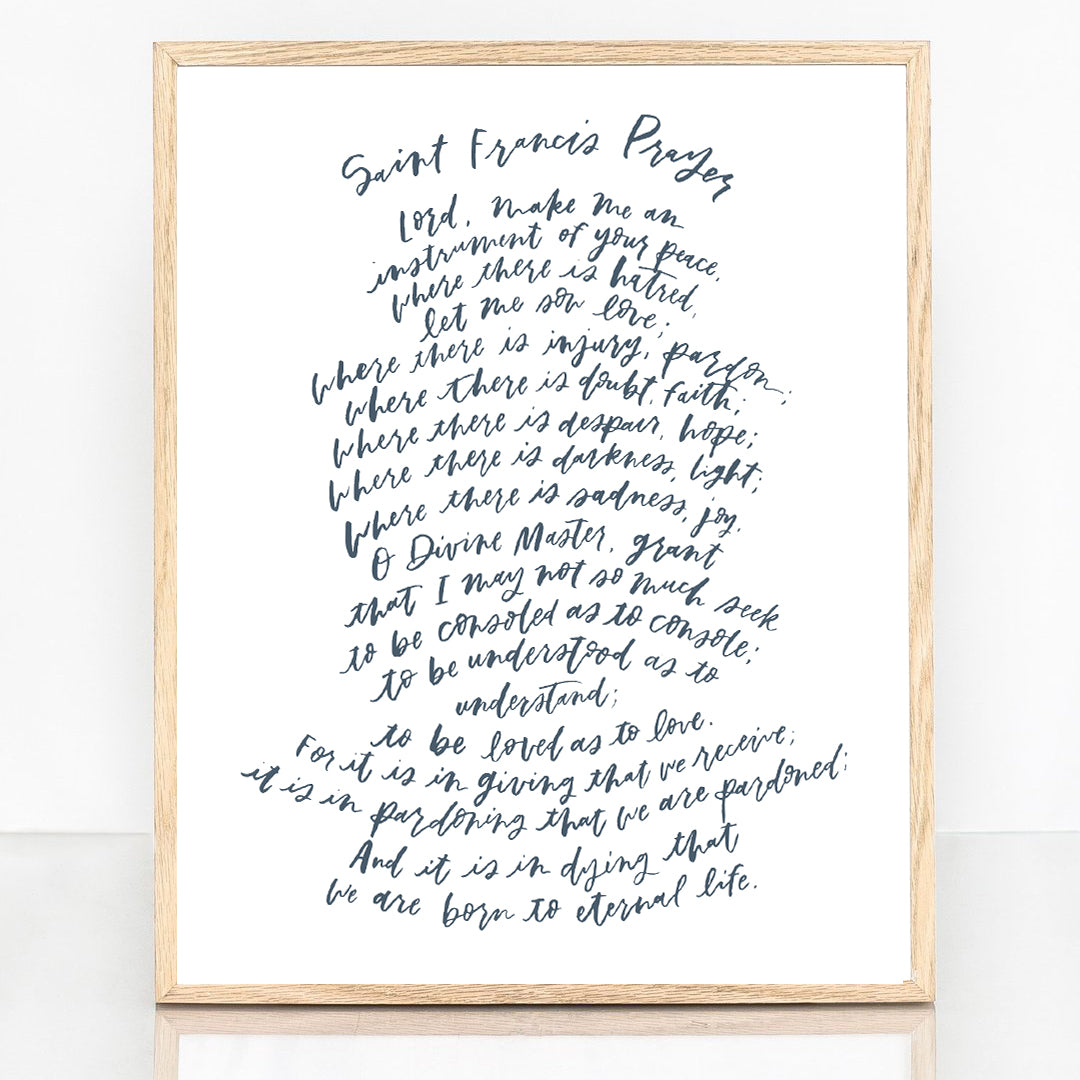 Saint Francis Prayer
Lord, make me an
instrument of your peace.
Where there is hatred,
let me sow love;
Where there is injury, pardon;
Where there is doubt, faith;
Where there is despair, hope;
Where there is darkness, light;
Where there is sadness, joy.
O Divine Master, grant
that I may not so much seek
to be consoled as to console;
to be understood as to
understand;
to be loved as to love.
For it is in giving that we receive;
it is in pardoning that we are pardoned;
And it is in dying that
we are born to eternal life.